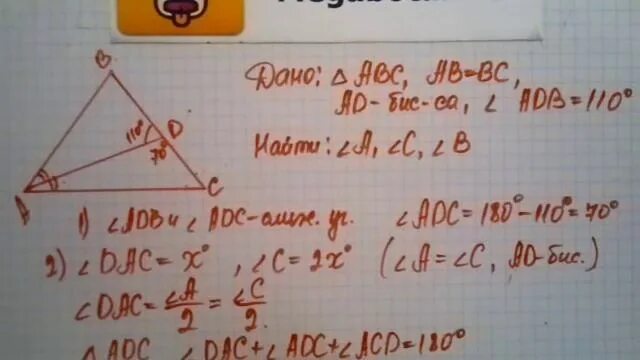 B
Дано: △ ABC, AB=BC,
AD-бис-са, ∠ ADB=110°
110°
D
70°
Найти: ∠A, ∠C, ∠B
A
C
1) ∠ADB и ∠ADC-смеж. уг. ∠ADC=180°-110°=70°
2) ∠DAC=x°, ∠C=2x° (∠A=∠C, AD-бис.)
∠DAC=∠A/2=∠C/2.
△ADC ∠DAC+∠ADC+∠ACD=180°